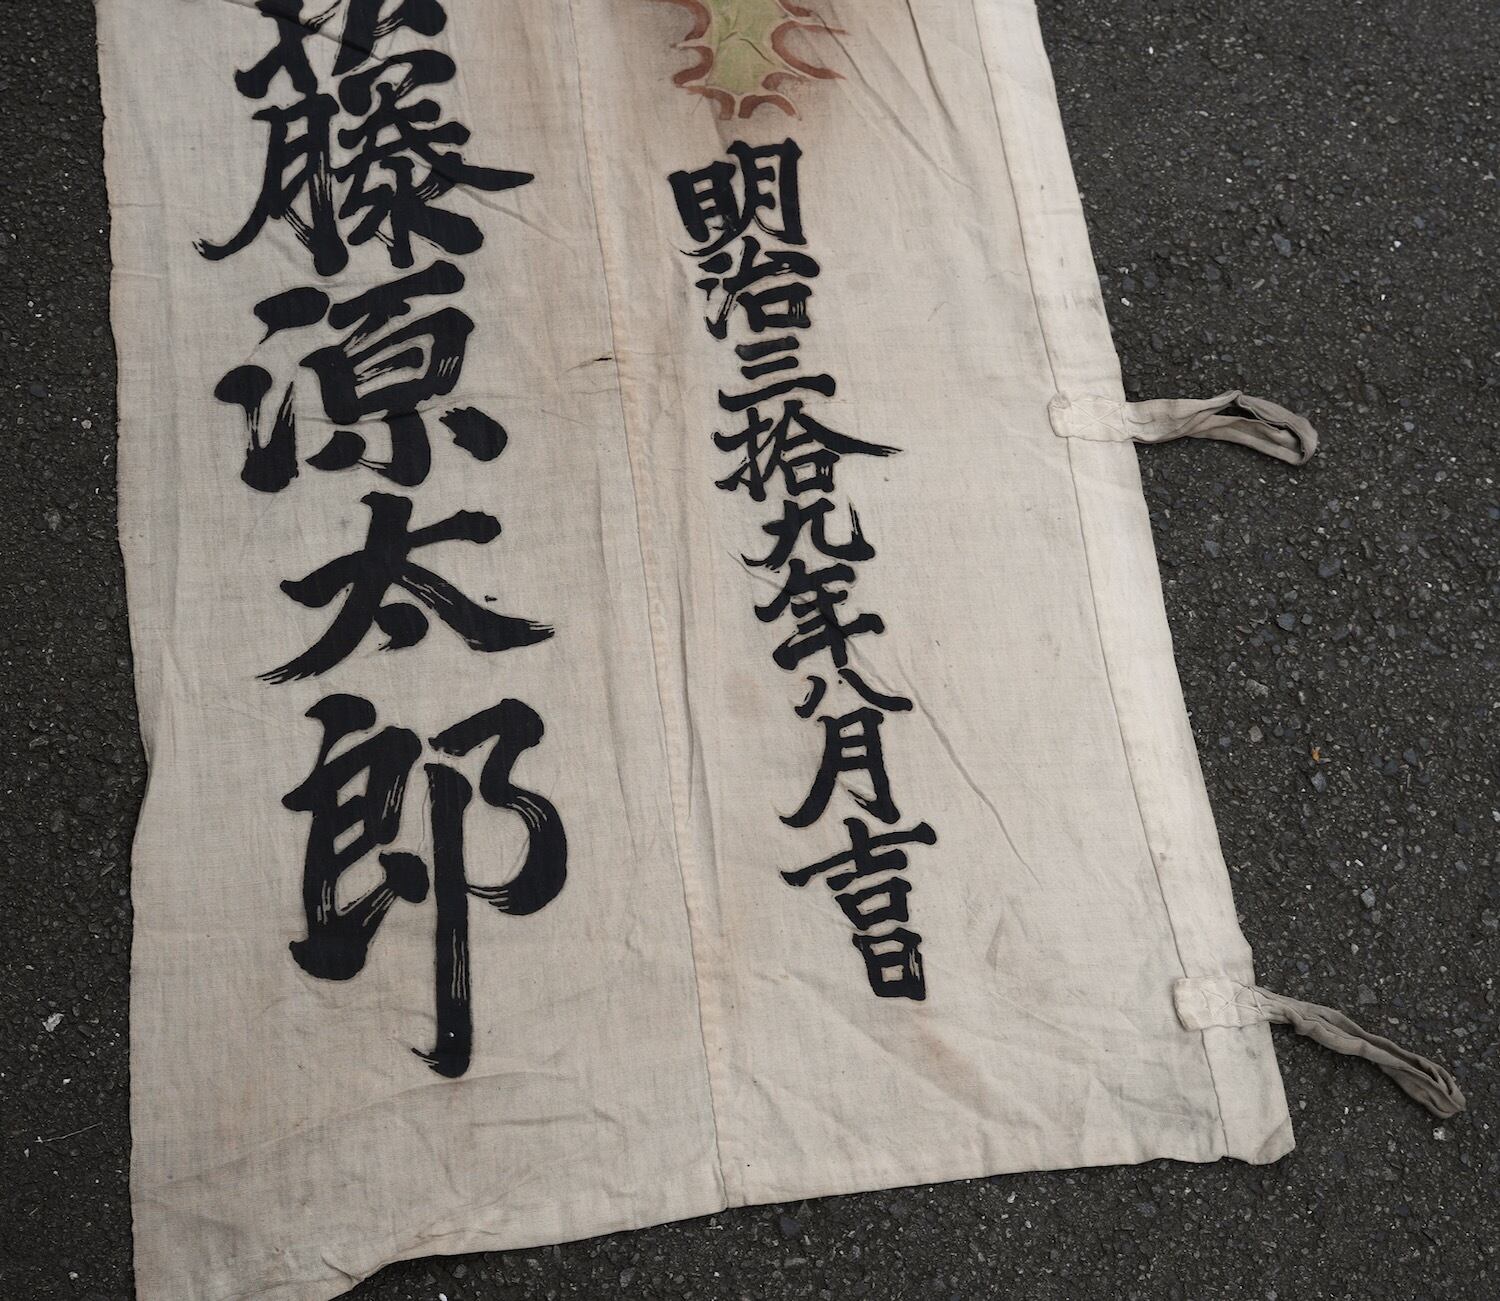 明治三拾九年八月吉日
藤源太郎